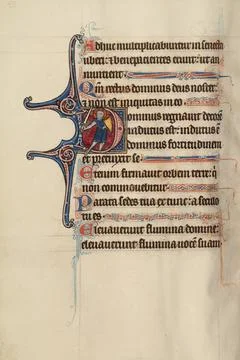 Adhuc multiplicabuntur in senecta
uberi: et bene pacientes erunt: ut an
nuntient
Qm rectus dominus deus noster:
et non est iniquitas in eo
Dominus regnavit decorē
indutus est: indutus ē
dominus fortitudinem
et precinxit se
Etenim firmavit orbem terre: q̄
non commovebitur
Parata sedes tua ex tunc: a seculo
tu es
Elevaverunt flumina domine:
elevaverunt flumina vocē suam